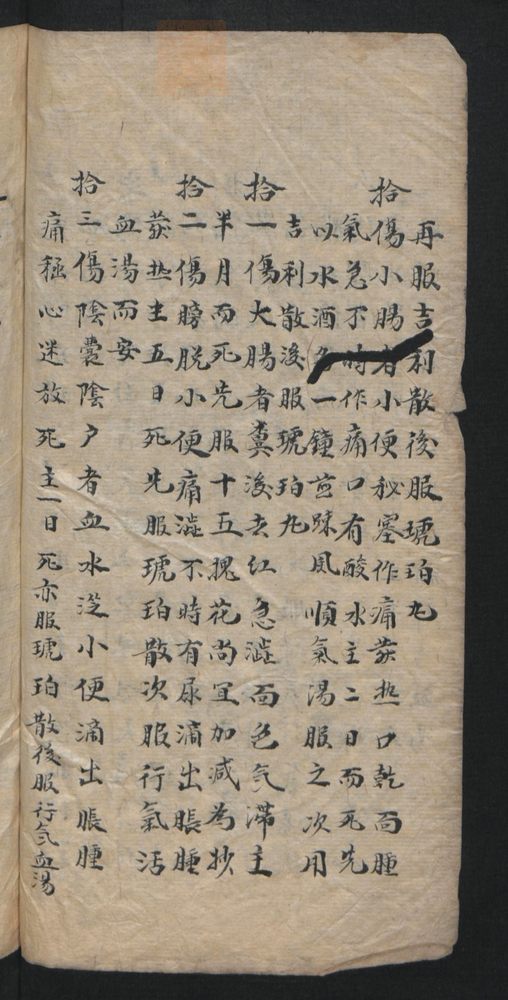 再服吉利散後服琥珀丸
拾傷小腸者小便秘塞作痛發热口乾面腫
氣急不時作痛口有酸水主二日而死先
以水酒各一鐘煎疎風順氣湯服之次用
吉利散後服琥珀丸
拾一傷大腸者糞後去红急澁面色气滯主
半月而死先服十五槐花尚宜加减為抄
拾二傷膀脱小便痛澁不時有尿滴出脹腫
發热主五日死先服琥珀散次服行氣活
血湯而安
拾三傷陰囊陰户者血水泛小便滴出脹腫
痛極心迷放死主一日死亦服琥珀散後服行气血湯